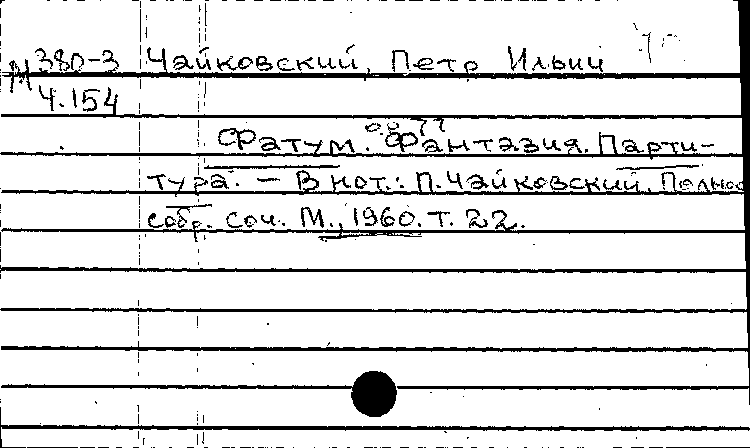 М 380-3 Чайковский, Петр Ильич
Ч.154
Фатум. Фантазия. Парти-
тура. — В нот.: П. Чайковский. Полное
собр. соч. М., 1960. Т. 22.